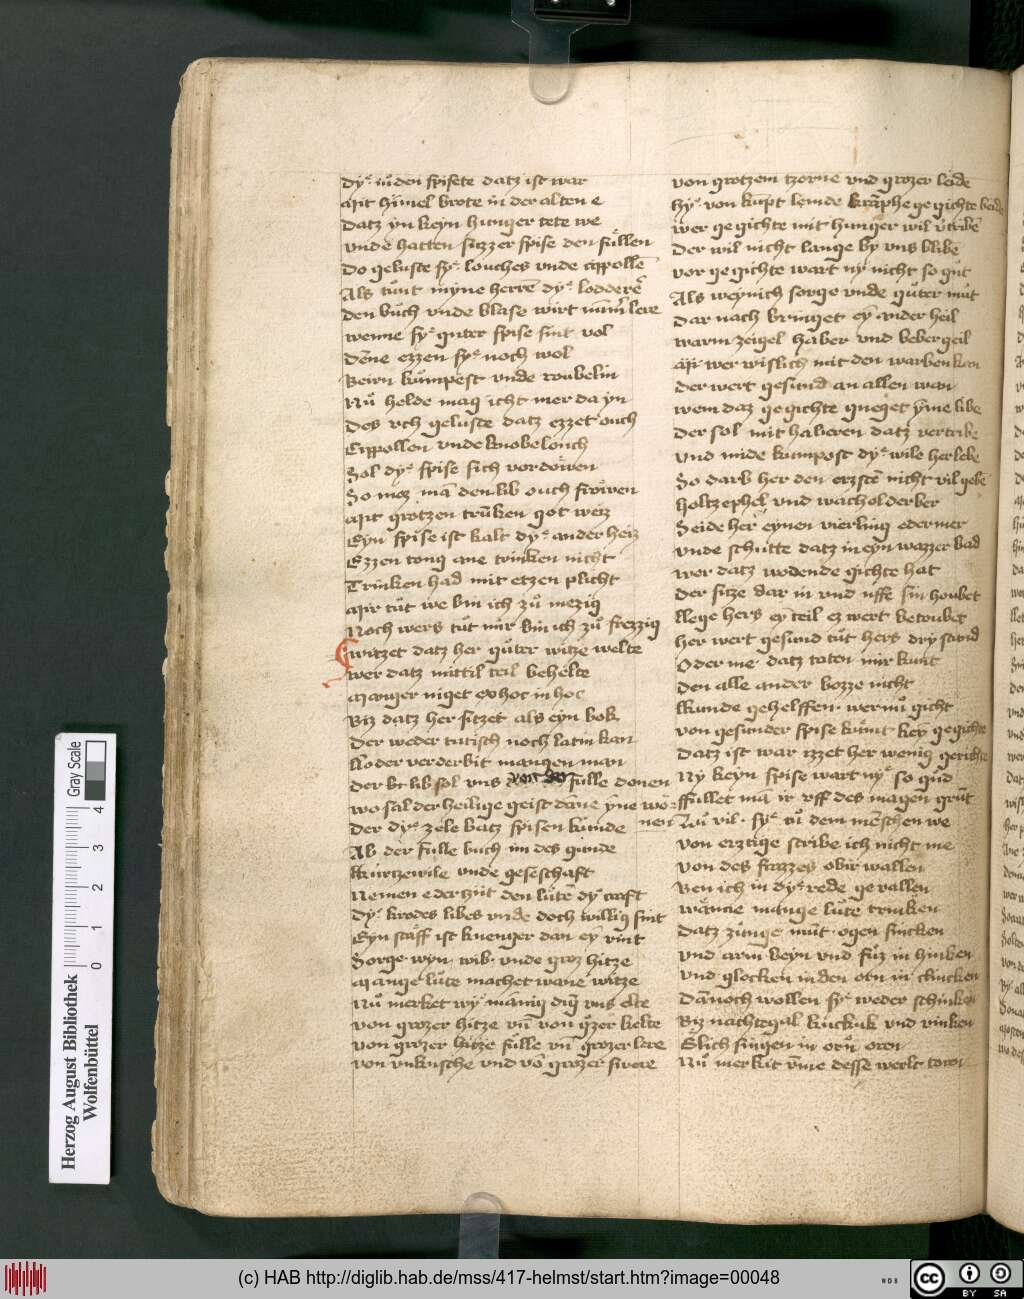 dy͛ iuͦden spisete datz ist war
Mit himel brote in der alten e
Datz yn keyn hunger tete we
Vnde hatten suzzer spise den fuͤllen
Do geluste sy͛ louches vnde cippollē
Als tuͦnt myne herrē dy͛ lodderē
den buͦch vnde blase wirt nūm̄ lere
wenne sy͛ guter spise sint vol
Dēne ezzen sy͛ noch wol
Beirn kuͦmpest vnde
Nuͦ helde mag icht mer da yn
Des vch geluste datz ezzet ouch
Cippollen vnde knobelouch
Sol dy͛ spise sich vordoͤwen
So moz mā den lib ouch froͤwen
Mit grotzen truͦken got weiz
Eyn spise ist kalt dy͛ ander heiz
Ezzen toug ane trinken nicht
Trinken had mit etzen plicht
Mir tuͦt we bin ich zuͦ mezig
Noch wers tuͦt mir bin ich zuͦ frezzig
witzet datz her guͦter witze welte
wer datz mittil teil behelte
Manger niget ex hoc in hoc
Biz datz her sitzet als eyn bok
Der weder tutisch noch latin kan
lloder verderbit mangen man
der lib sol vns fulle donen
wo sal der heilige geist dāne yne wo
nen
der dy͛ zele batz spisen kunde
Ab der fulle buch im des gunde
kurtzewile vnde geselschaft
Nemen eder zijt den luͤtē dy͛ craft
Dy͛ krodes libes vnde doch willig sint
Eyn staff ist kuenger dan eȳ rint
Sorge wyn wib vnde groz hitze
Mange luͤte machet wane witze
Nuͦ merket wy͛ manig dig vns elte
von grozer hitze vn̄ von gͦzer kelte
von grozer hitze fulle vn̄ grozer lere
von vnkusche vnd vō grozer swere
von grotzem tzorne vnd grozer leide
hy͛ von kupt lemde kramphe gegichte beide
wer gegichte mit hunger wil v̄tribē
der wil nicht lange by vns blibē
vor gegichte wart ny͛ nicht so guͦt
Als weynich sorge vnde guͦter muͦt
Dar nach bringet eȳ ander heil
warm zeigel haber vnd bebergeil
wer wislich mit den warben kan
der wert gesund an allen wan
wem daz gegichte gneget ȳme libe
der sol mit haberen datz vertribe
vnd mide kumpost dy͛ wile her lebe
So darb her den erzstē nicht vil gebē
holtzephel vnd wacholderber
Seide her eynen vierling eder mer
vnde schutte datz in eyn wazzer bad
wer datz wodende gichte hat
der sitze dar in vnd vffe sin houbet
llege hers eȳ teil ez wert betoubet
her wert gesund tuͦt hers dry stund
Oder me datz toten mir kunt
den alle ander bozze nicht
kunde gehelffen wermuͦ gicht
von gesunder spise kuͦmt keȳ gegichte
Datz ist war izzet her wenig gerichte
Ny keyn spise wart ny͛ so guͦd
ffullet mā ir vff des magen gruͦt
wil vil sy͛ tuͦ dem mēschen we
von erztige scribe ich nicht me
von des frazzes obir wallen
Ben ich in dy͛ rede gevallen
wāne mange luͤte trinken
Datz zunge muͦt ogen sincken
vnd arm beyn vnd fuͦz in hinken
vnd glocken in den orn in clincken
Dānoch wollen sy͛ weder schinken
Biz nachtegal kuckuk vnd vinken
Glich singen in oren
Nuͦ merkit vm̄e desse werlt toren
(c) HAB http://diglib.hab.de/mss/417-helmst/start.htm?image=00048
Herzog August Bibliothek
Wolfenbüttel
0 1 2 3 4
Gray Scale
WDB
cc
BY SA